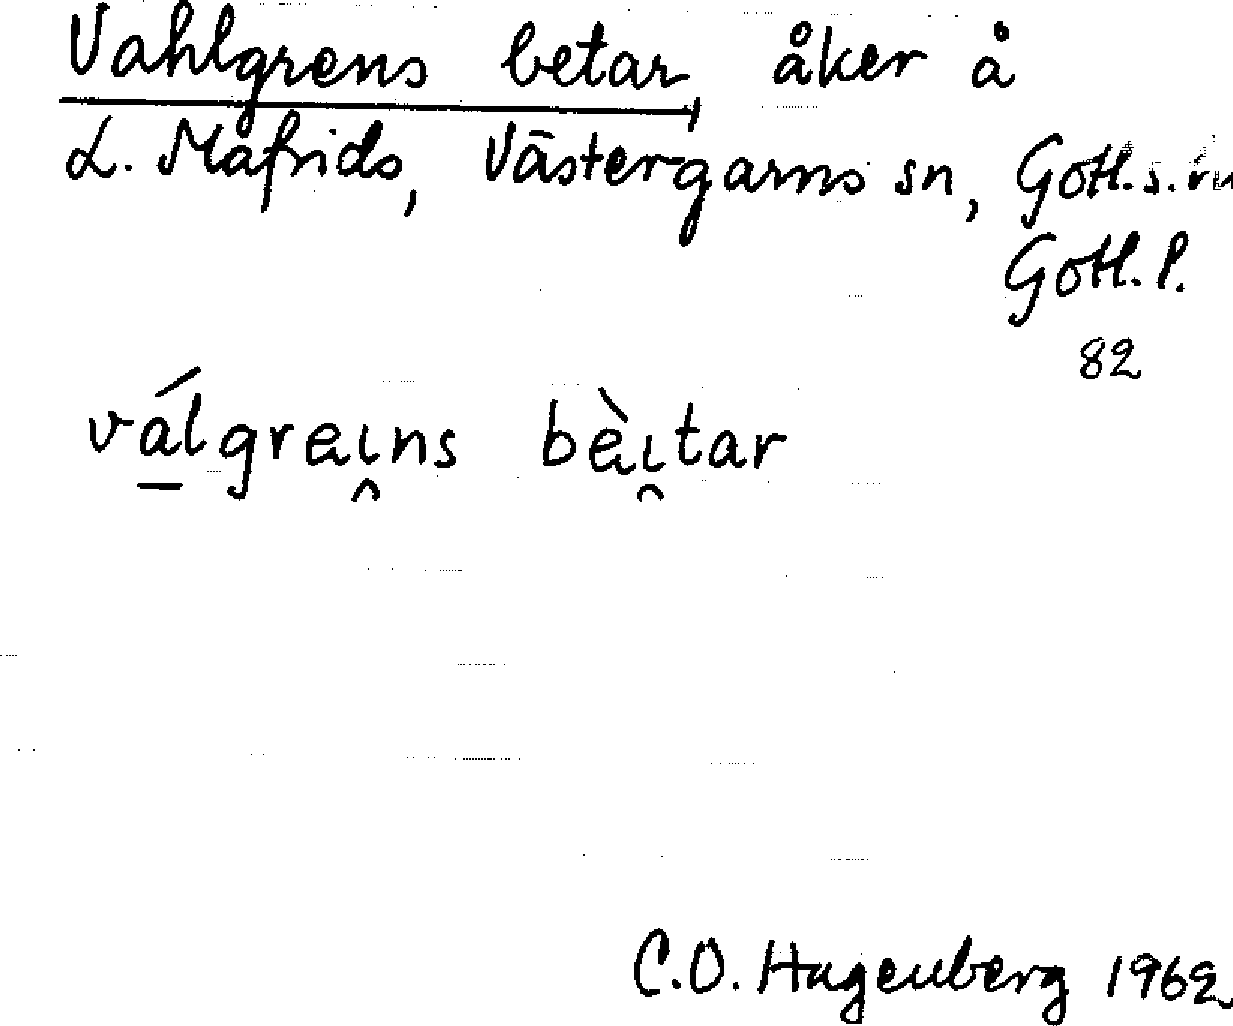 Vahlgrens betar, åker å
L. Mafrids, Västergarns sn, Gotl. s.
Gotl. l.
82
válgrei̯ns bèi̯tar
C.O. Hagenberg 1962